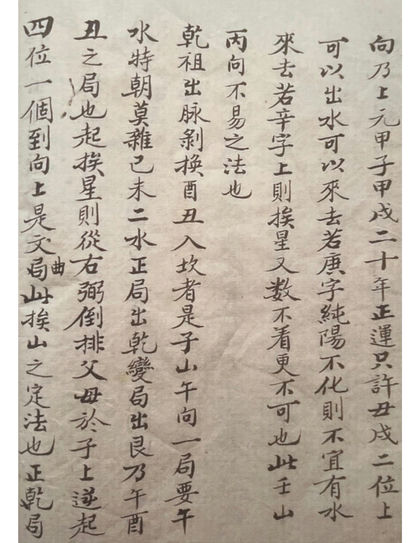 向乃上元甲子甲戌二十年正運只許丑戌二位上
可以出水可以來去若庚字純陽不化則不宜有水
來去若辛字上則挨星又數不着更不可也此壬山
丙向不易之法也
乾祖出脉剝換酉丑入坎者是子山午向一局要午
水特朝莫雜己未二水正局出乾變局出艮乃午酉
丑之局也起挨星則從右弼倒排父母於子上遂起
四位一個到向上是文曲局此挨山之定法也正乾局